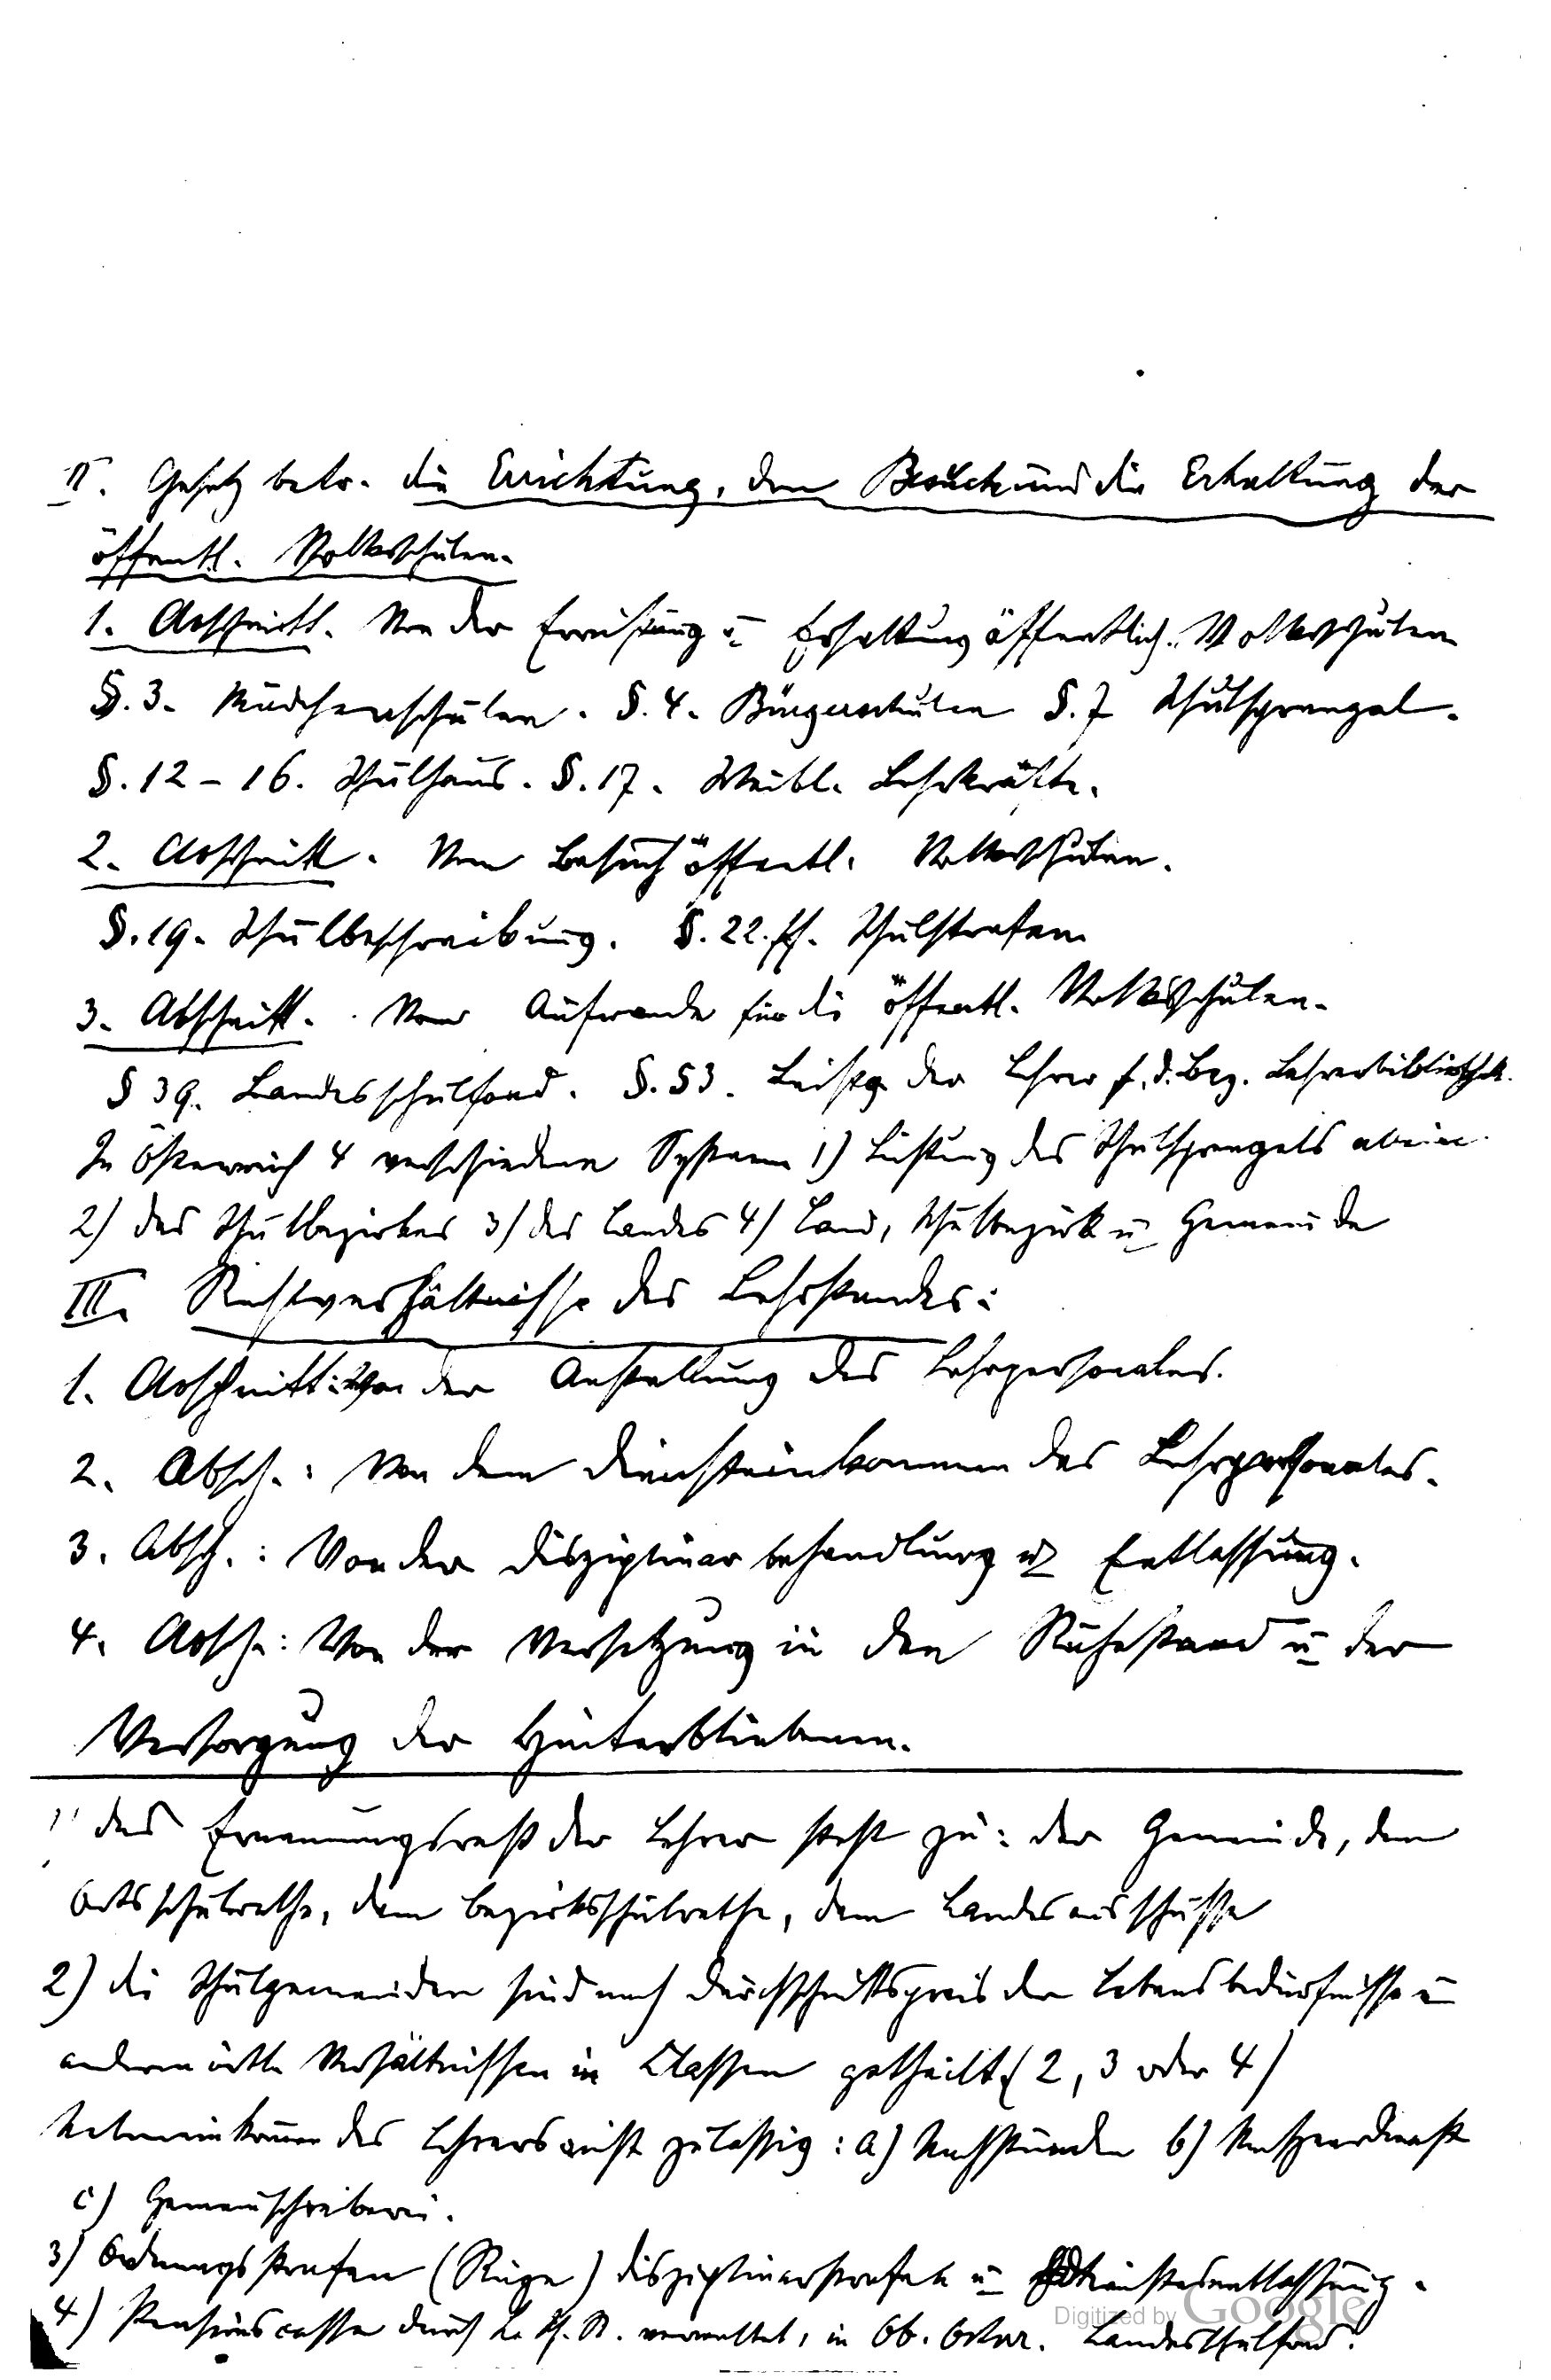 II. Gesetz betr. die Errichtung, den Besuch und die Erhaltung der
öffentl. Volksschulen.
1. Abschnitt. Von der Errichtung u. Erhaltung öffentlich. Volksschulen
§. 3. Mädchenschulen. §. 4. Bürgerschulen §. 7 Schulsprengel.
§. 12 – 16. Schulhaus. §. 17. Weibl. Lehrkräfte.
2. Abschnitt. Vom Besuch öffentl. Volksschulen.
§. 19. Schulbeschreibung. §. 22. ff. Schulstrafen
3. Abschnitt. Vom Aufwande für die öffentl. Volksschulen.
§ 39. Landesschulfond. §. 53. Leistg. der Lehrer f. d. Bez. Lehrerbibliothek.
In Österreich 4 verschiedene Systeme 1) Leistung des Schulsprengels allein
2) des Schulbezirkes 3) des Landes 4) Land, Schulbezirk u. Gemeinde
III. Rechtsverhältnisse des Lehrstandes:
1. Abschnitt: Von der Anstellung des Lehrpersonales.
2. Absch.: Von dem Diensteinkommen des Lehrpersonales.
3. Absch.: Von der Disziplinarbehandlung u. Entlassung.
4. Absch.: Von der Versetzung in den Ruhestand u. der
Versorgung der Hinterbliebenen.
1) das Ernennungsrecht der Lehrer steht zu: der Gemeinde, dem
Ortsschulrathe, dem Bezirksschulrathe, dem Landesausschusse
2) die Schulgemeinden sind nach Durchschnittspreis der Lebensbedürfnisse u.
anderen örtl. Verhältnissen in Classen getheilt (2, 3 oder 4)
Nebeneinkommen des Lehrers nicht zulässig: a) Nachstunden b) Meßnerdienst
c) Gemeinschreiberei.
3) Ordnungsstrafen (Rüge) Disziplinarstrafen u. Dienstesentlassung.
4) Pensionscasse durch L. Sch. R. verwaltet, in Ob. Österr. Landesschulfond.
Digitized by Google